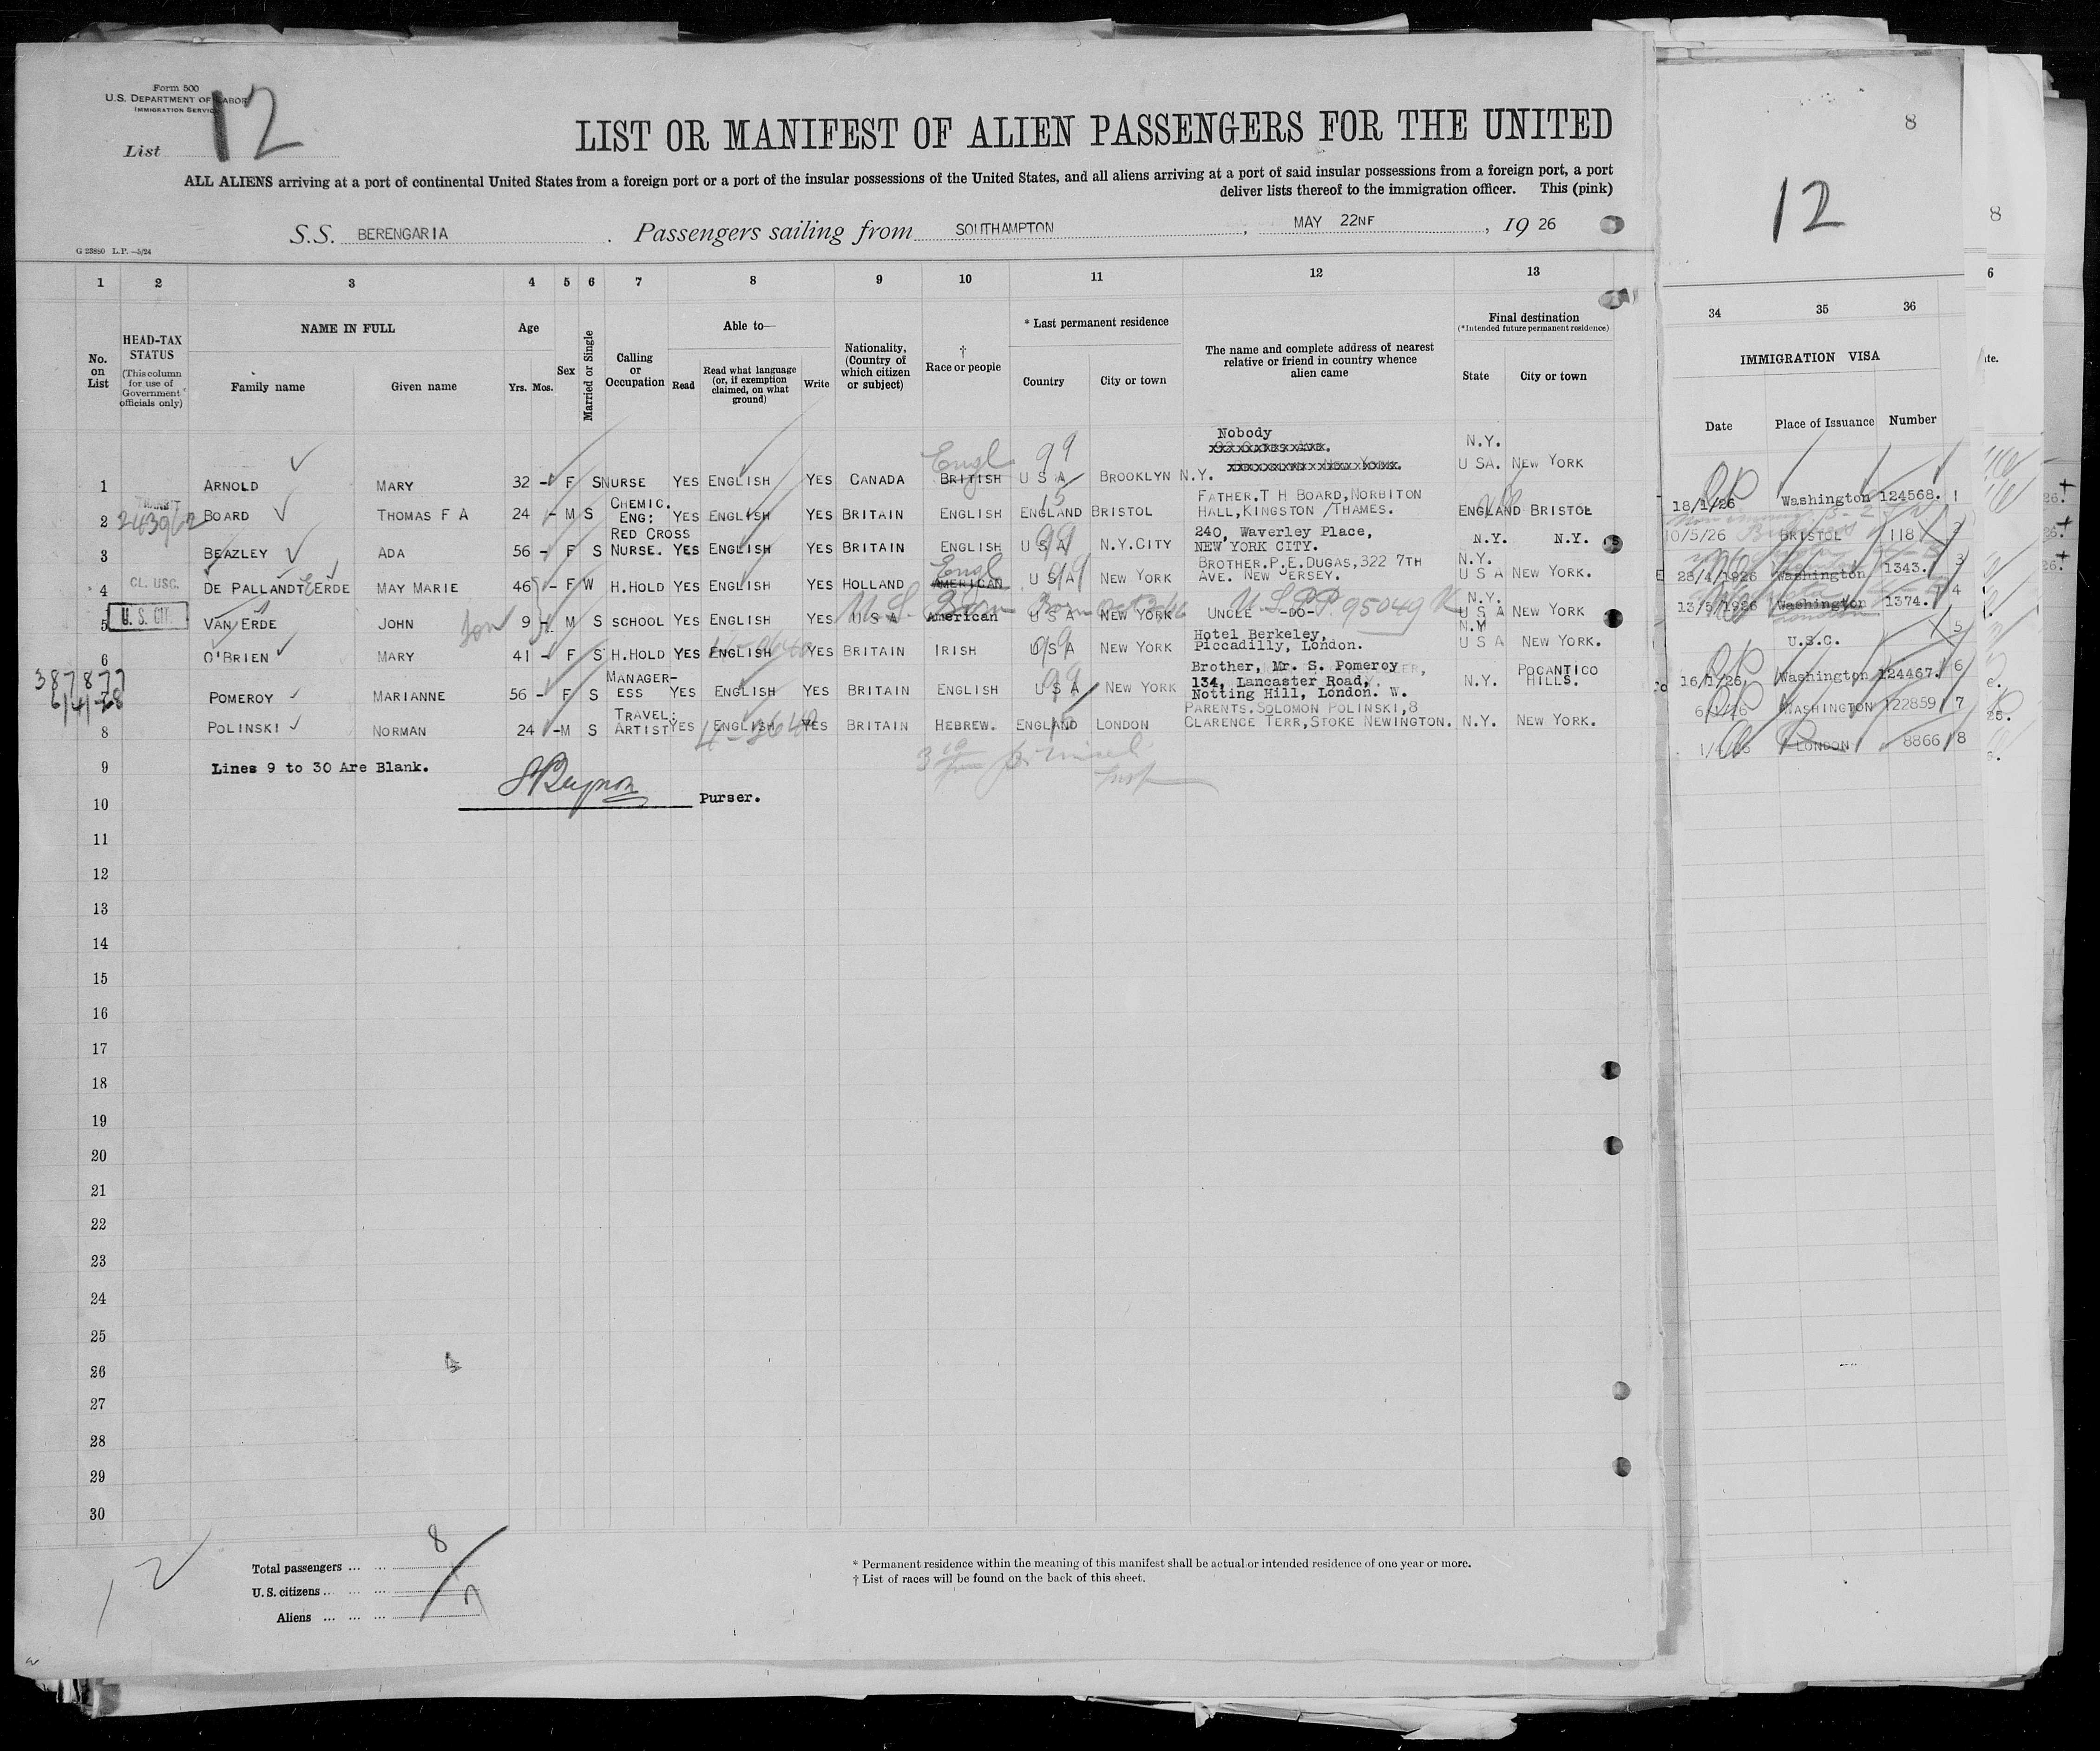 Form 500
U.S. DEPARTMENT OF LABOR
IMMIGRATION SERVICE
List 12
LIST OR MANIFEST OF ALIEN PASSENGERS FOR THE UNITED
ALL ALIENS arriving at a port of continental United States from a foreign port or a port of the insular possessions of the United States, and all aliens arriving at a port of said insular possessions from a foreign port, a port
deliver lists thereof to the immigration officer. This (pink)
S.S. BERENGARIA Passengers sailing from SOUTHAMPTON, MAY 22NF, 19 26
G 23880 L.P.—5/24
8
12
8
6
1 2 3 4 5 6 7 8 9 10 11 12 13
34 35 36
No. on List
HEAD-TAX STATUS
(This column for use of Government officials only)
NAME IN FULL
Family name Given name
Age
Yrs. Mos.
Sex
Married or Single
Calling or Occupation
Able to—
Read
Read what language (or, if exemption claimed, on what ground)
Write
Nationality, (Country of which citizen or subject)
† Race or people
* Last permanent residence
Country City or town
The name and complete address of nearest relative or friend in country whence alien came
Final destination
(*Intended future permanent residence)
State City or town
IMMIGRATION VISA
Date Place of Issuance Number
Nobody
N.Y.
1 ARNOLD MARY 32 - F S NURSE YES ENGLISH YES CANADA BRITISH Engl U S A 99 BROOKLYN N.Y. U SA. NEW YORK 18/1/26 Washington 124568. 1
TRANSIT
2 243962 BOARD THOMAS F A 24 - M S CHEMIC. ENG: YES ENGLISH YES BRITAIN ENGLISH 15 ENGLAND BRISTOL FATHER.T H BOARD,NORBITON HALL,KINGSTON /THAMES. ENGLAND BRISTOL 10/5/26 BRISTOL 118 2
3 BEAZLEY ADA 56 - F S RED CROSS NURSE. YES ENGLISH YES BRITAIN ENGLISH U S A 99 N.Y.CITY 240, Waverley Place, NEW YORK CITY. N.Y. N.Y. 28/4/1926 Washington 1343. 3
4 CL. USC. DE PALLANDT EERDE MAY MARIE 46 - F W H.HOLD YES ENGLISH YES HOLLAND AMERICAN Engl U S A 99 NEW YORK BROTHER.P.E.DUGAS,322 7TH AVE. NEW JERSEY. N.Y. U S A NEW YORK. 13/5/1926 Washington London 1374. 4
5 U. S. CIT. VAN ERDE JOHN Son 9 - M S SCHOOL YES ENGLISH YES U S A American U S A NEW YORK UNCLE -DO- U.S.PP. 95049 N.Y. U S A NEW YORK U.S.C. 5
6 O'BRIEN MARY 41 - F S H.HOLD YES ENGLISH YES BRITAIN IRISH U S A 99 NEW YORK Hotel Berkeley, Piccadilly, London. N.Y U S A NEW YORK. 16/1/26, Washington 124467. 6
387877
6/4/28
7 POMEROY MARIANNE 56 - F S MANAGER- ESS YES ENGLISH YES BRITAIN ENGLISH U S A 99 NEW YORK Brother, Mr. S. Pomeroy 134, Lancaster Road, Notting Hill, London. W. N.Y. POCANTICO HILLS. 6/1/26 WASHINGTON 122859 7
8 POLINSKI NORMAN 24 -M S TRAVEL: ARTIST YES ENGLISH YES BRITAIN HEBREW. ENGLAND LONDON PARENTS.SOLOMON POLINSKI,8 CLARENCE TERR,STOKE NEWINGTON. N.Y. NEW YORK. LONDON 8866 8
9 Lines 9 to 30 Are Blank.
10 Purser.
11
12
13
14
15
16
17
18
19
20
21
22
23
24
25
26
27
28
29
30
12
Total passengers ... ... 8
U. S. citizens ... ... ...
Aliens ... ... ... 7
* Permanent residence within the meaning of this manifest shall be actual or intended residence of one year or more.
† List of races will be found on the back of this sheet.